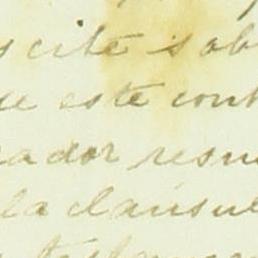 scite sob
ue este cont
ador resu
la clausul